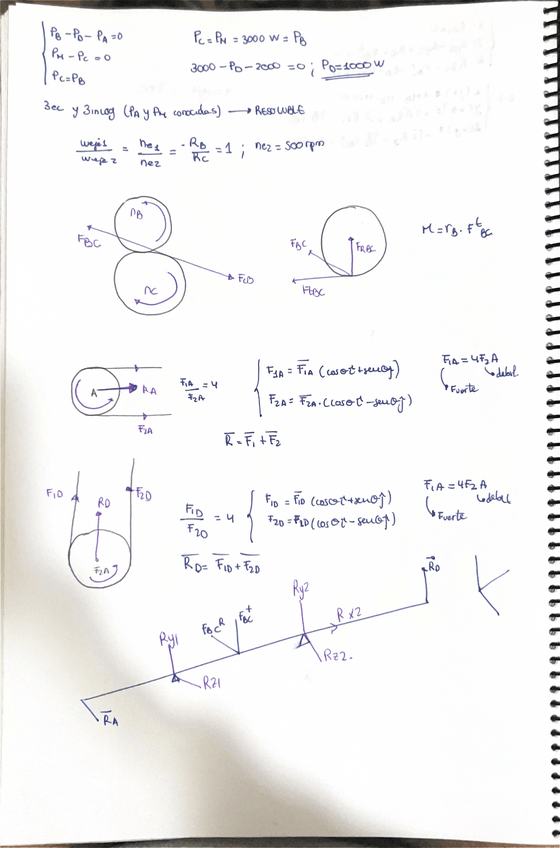 P_B - P_D - P_A = 0
P_M - P_C = 0
P_C = P_B
P_C = P_M = 3000 W = P_B
3000 - P_D - 2000 = 0 ; P_D = 1000 W
3 ec y 3 incog (P_A y P_M conocidas) → RESOLUBLE
weje1 / weje2 = ne1 / ne2 = - R_B / R_C = 1 ; ne2 = 500 rpm
n_B
F_BC
F_CD
n_C
F_BC
F_RBC
Ft_BC
M = r_B · F^t_BC
A
R_A
F_2A
F_1A / F_2A = 4
F_1A = F_1A (cosθ i + senθ j)
F_2A = F_2A · (cosθ i - senθ j)
R = F_1 + F_2
F_1A = 4F_2A
Fuerte
debil
F_1D
R_D
F_2D
F_2A
F_1D / F_2D = 4
F_1D = F_1D (cosθ i + senθ j)
F_2D = F_2D (cosθ i - senθ j)
R_D = F_1D + F_2D
F_1A = 4F_2A
Fuerte
debil
R_D
Ry2
R x2
F_BC^R
F_BC^t
Ry1
Rz2.
Rz1
R_A